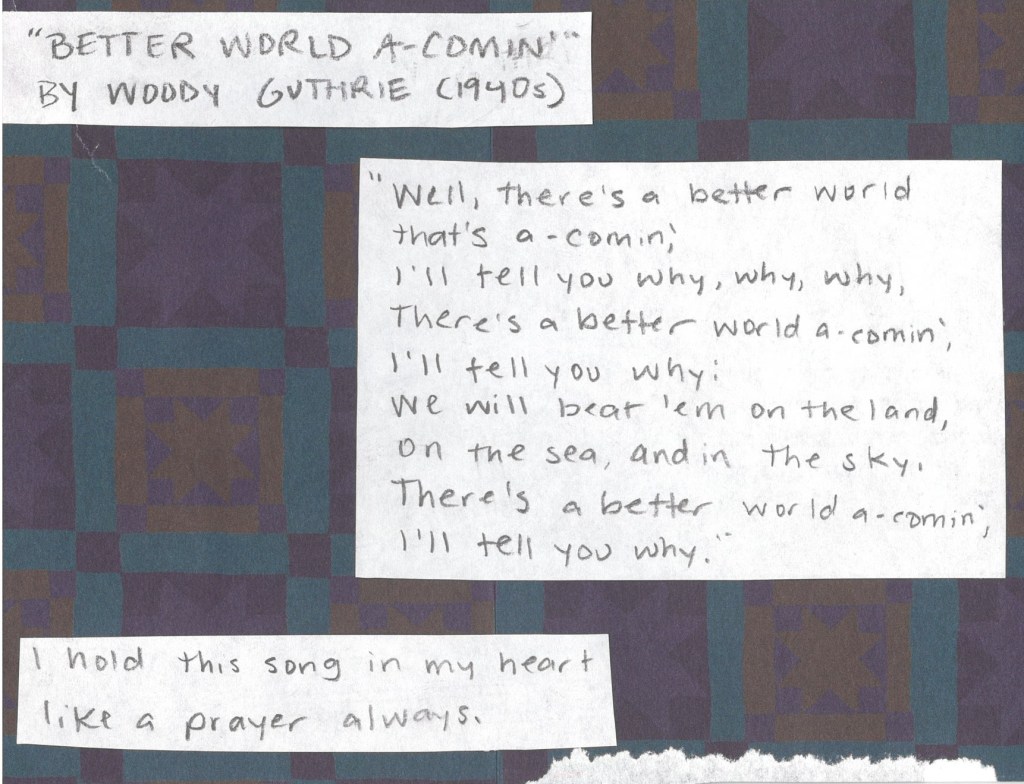 "BETTER WORLD A-COMIN'"
BY WOODY GUTHRIE (1940s)
"Well, there's a better world
that's a-comin',
I'll tell you why, why, why,
There's a better world a-comin',
I'll tell you why:
We will beat 'em on the land,
on the sea, and in the sky.
There's a better world a-comin',
I'll tell you why."
I hold this song in my heart
like a prayer always.